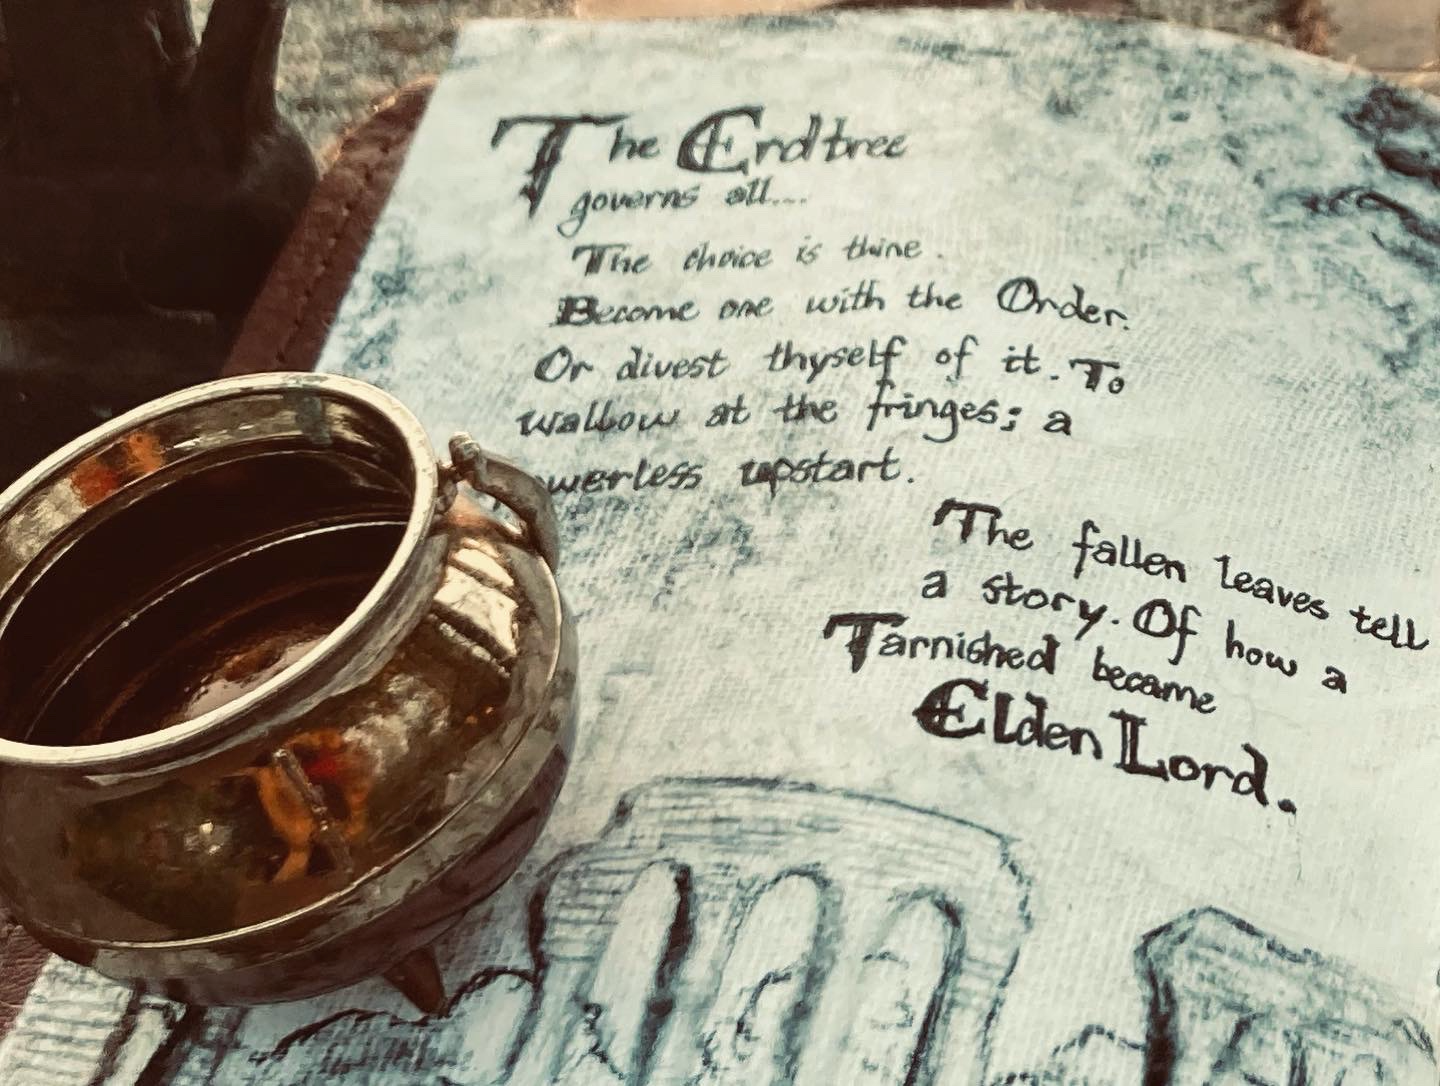 The Erdtree
governs all...
The choice is thine.
Become one with the Order.
Or divest thyself of it. To
wallow at the fringes; a
werless upstart.
The fallen leaves tell
a story. Of how a
Tarnished became
Elden Lord.